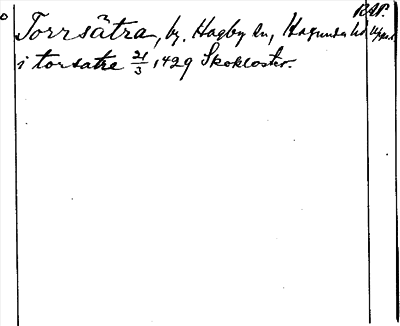 RAP.
Torrsätra, by. Hagby sn, Hagunda hd Uppl.
i torsatre 21/3 1429 Skokloster.